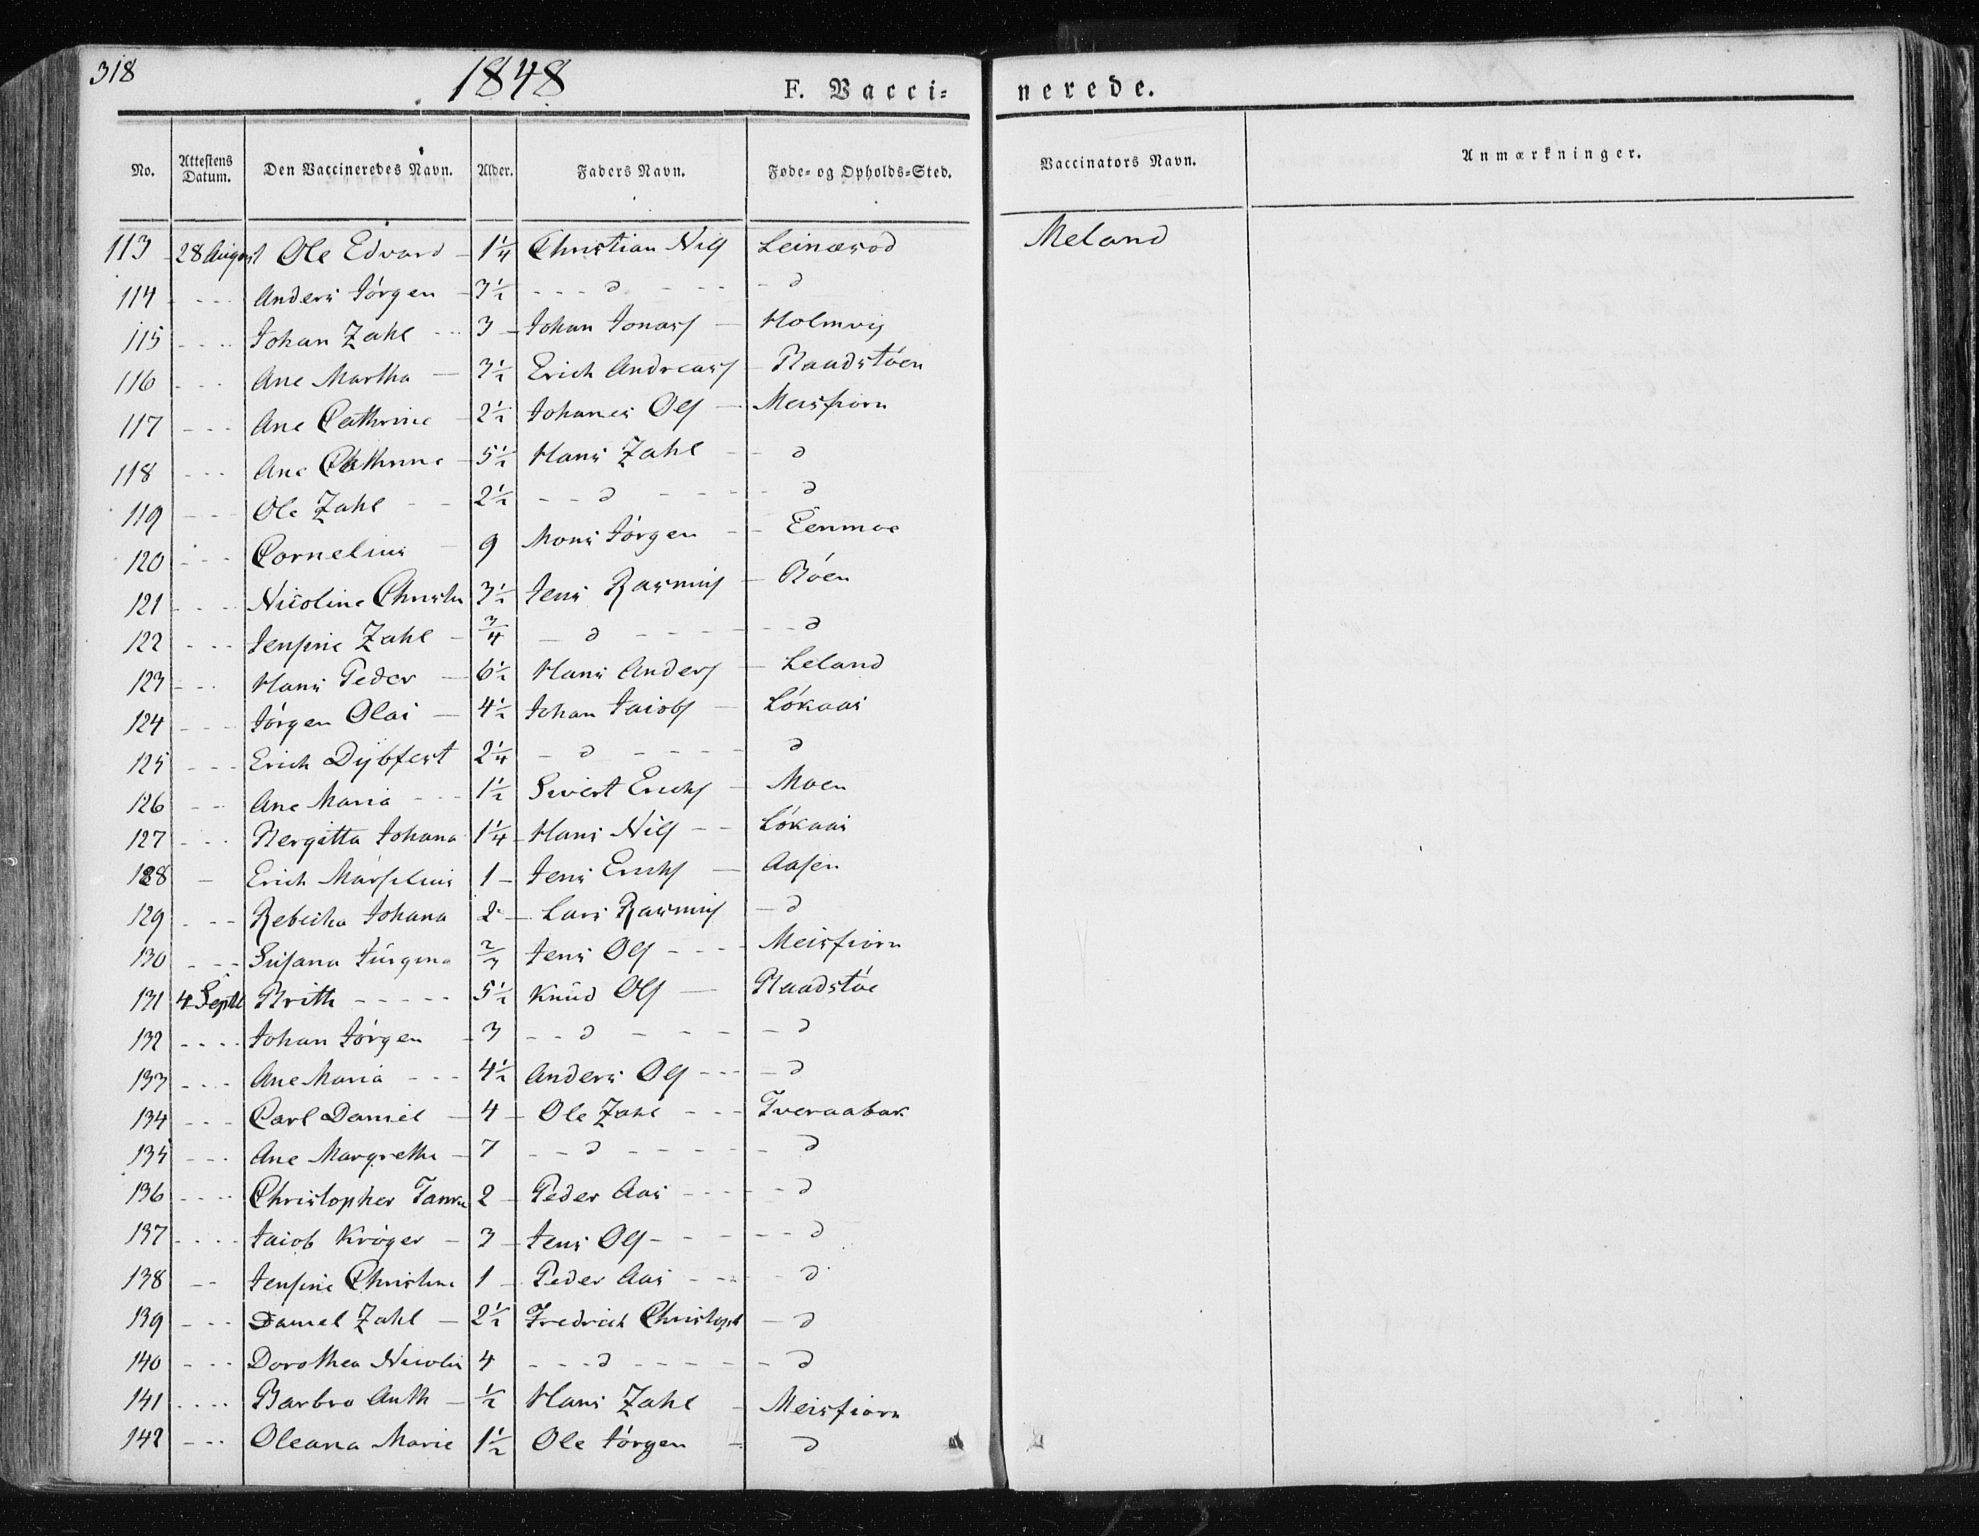 318 1848 F. Vacci= nerede.
No. Attestens Datum. Den Vaccineredes Navn. Alder. Faders Navn. Føde= og Opholds=Sted. Vaccinators Navn. Anmærkninger.
113 28 August Ole Edvard - 1 1/4 Christian Nils Leinæsod Meland
114 - - - Anders Jørgen - 3 1/2 - - - d - - - - d
115 - - - Johan Zahl - - 3 - Johan Jonas - Holmvig
116 - - - Ane Martha - 3 1/2 Erich Andreas - Baadstøen
117 - - - Ane Cathrine - 2 1/2 Johanes Ols - Meisfiorn
118 - - - Ane Cathrine - 5 1/2 Hans Zahl - - d
119 - - - Ole Zahl - - 2 1/2 - - d - - - - d
120 - - - Cornelius - 9 Mons Jørgen - - Eenmoe
121 - - - Nicoline Christn 3 1/2 Jens Rasmus - Røen
122 - - - Jensine Zahl - 3/4 - d - - - - - d
123 - - - Hans Peder - 6 1/2 Hans Anders - Leland
124 - - - Jørgen Olai - 4 1/2 Johan Jacobs - Løkaas
125 - - - Erich Dybfest 2 1/4 - d - - - - d
126 - - Ane Maria - - - 1 1/2 Sivert Erichs - Moen
127 - - - Bergitta Johana 1 1/4 Hans Nils - - Løkaas
128 - Erich Marselius 1 - Jens Erichs - Aasen
129 - - - Rebecka Johana 2 - Lars Rasmus - d
130 - - - Susana Jürgina 2/3 Jens Ols - - - Meisfiorn
131 4 Septb Brith - - - - - 5 1/2 Knüd Ols - Baadstøe
132 - - - - Johan Jørgen - 3 - - d - - - - d
133 - - - Ane Maria - - - 4 1/2 Anders Ols - - - d
134 - - - Carl Daniel - 4 - Ole Zahl - - - Tveraabak
135 - - - Ane Margrethe - 7 - - d - - - - - d
136 - - - - Christopher 2 - Peder Aas - - - - d
137 - - - - Jacob Krøger - 3 - Jens Ols - - - - - d
138 - - Jensine Christine 1 - Peder Aas - - - - d
139 - - - Daniel Zahl - 2 1/2 Fredrich Christoph - d
140 - - - Dorothea Nicolin 4 - - - d - - - - - - d
141 - - - - Barbro Anth - 1/2 Hans Zahl - Meisfiorn
142 - - - Oleana Marie 1 1/2 Ole Jørgen - d